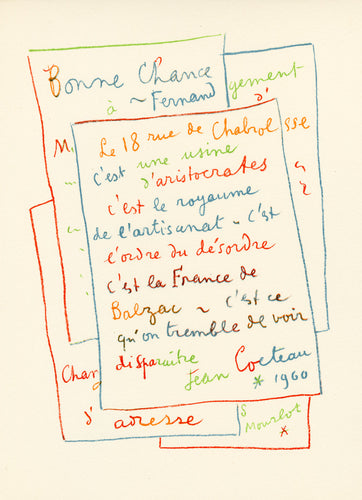 Bonne Chance
à ~ Fernand
gement
d'
M
Le 18 rue de Chabrol
sse
c'est une usine
d'aristocrates
c'est le royaume
de l'artisanat ~ c'est
l'ordre du désordre
c'est la France de
Balzac ~ c'est ce
qu'on tremble de voir
disparaître
Jean Cocteau
* 1960
Chan
d'adresse
S
Mourlot
*